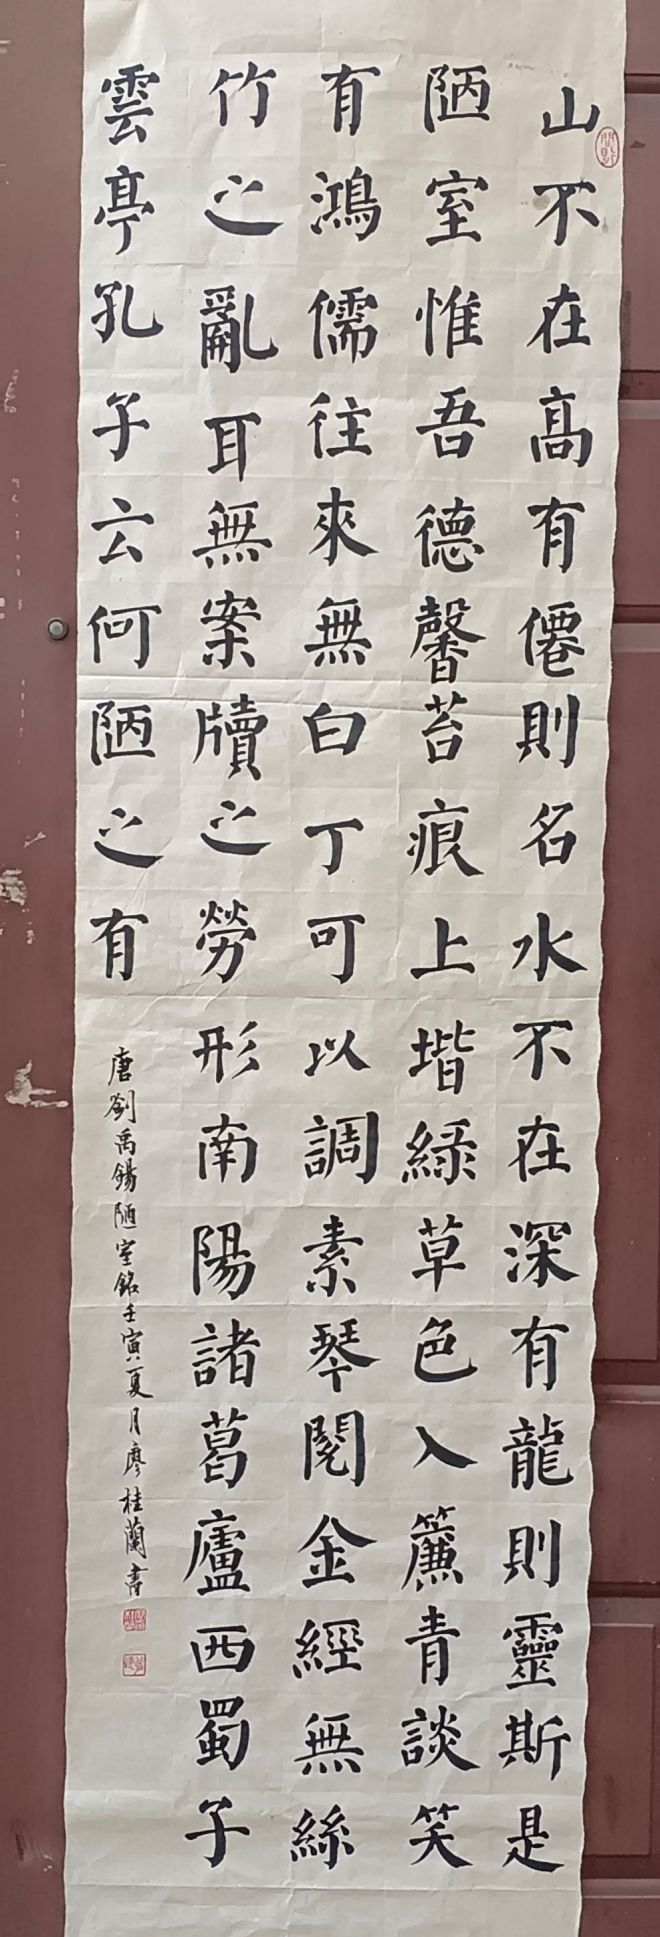 山不在高有僊則名水不在深有龍則靈斯是
陋室惟吾德馨苔痕上堦緑草色入簾青談笑
有鴻儒往來無白丁可以調素琴閱金經無絲
竹之亂耳無案牘之勞形南陽諸葛廬西蜀子
雲亭孔子云何陋之有
唐劉禹錫陋室銘壬寅夏月廖桂蘭書